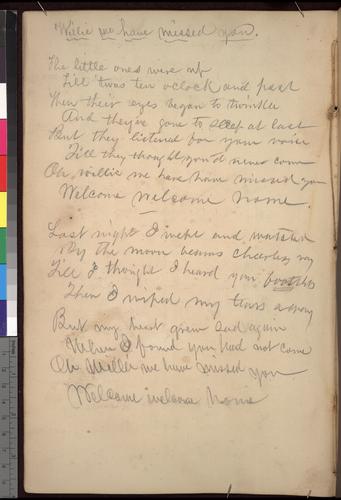 Willie we have missed you.
The little ones were up
Till 'twas ten oclock and past
Then their eyes began to twinkle
And they've gone to sleep at last
But they listened for your voice
Till they thought you'd never come
Oh Willie we have have missed you
Welcome welcome home.
Last night I wept and watched
By the moon beams cheerless ray
Till I thought I heard your footstep
Then I wiped my tears away
But my heart grew sad again
When I found you had not come
Oh Willie we have missed you
Welcome welcome home